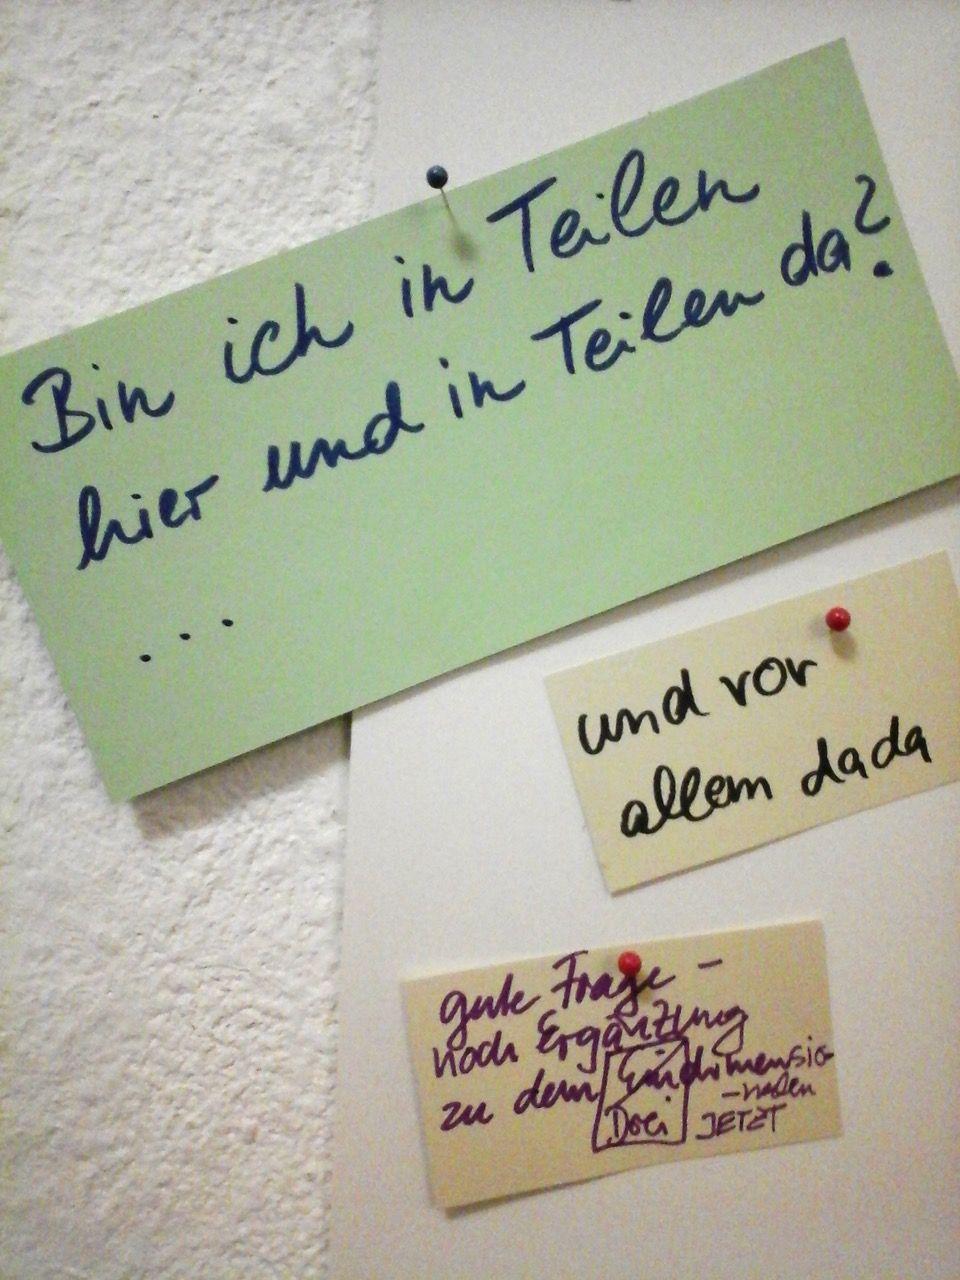 Bin ich in Teilen
hier und in Teilen da?
...
und vor
allem dada
gute Frage –
noch Ergänzung
zu dem Eindimensio-
Drei
-nalen
JETZT